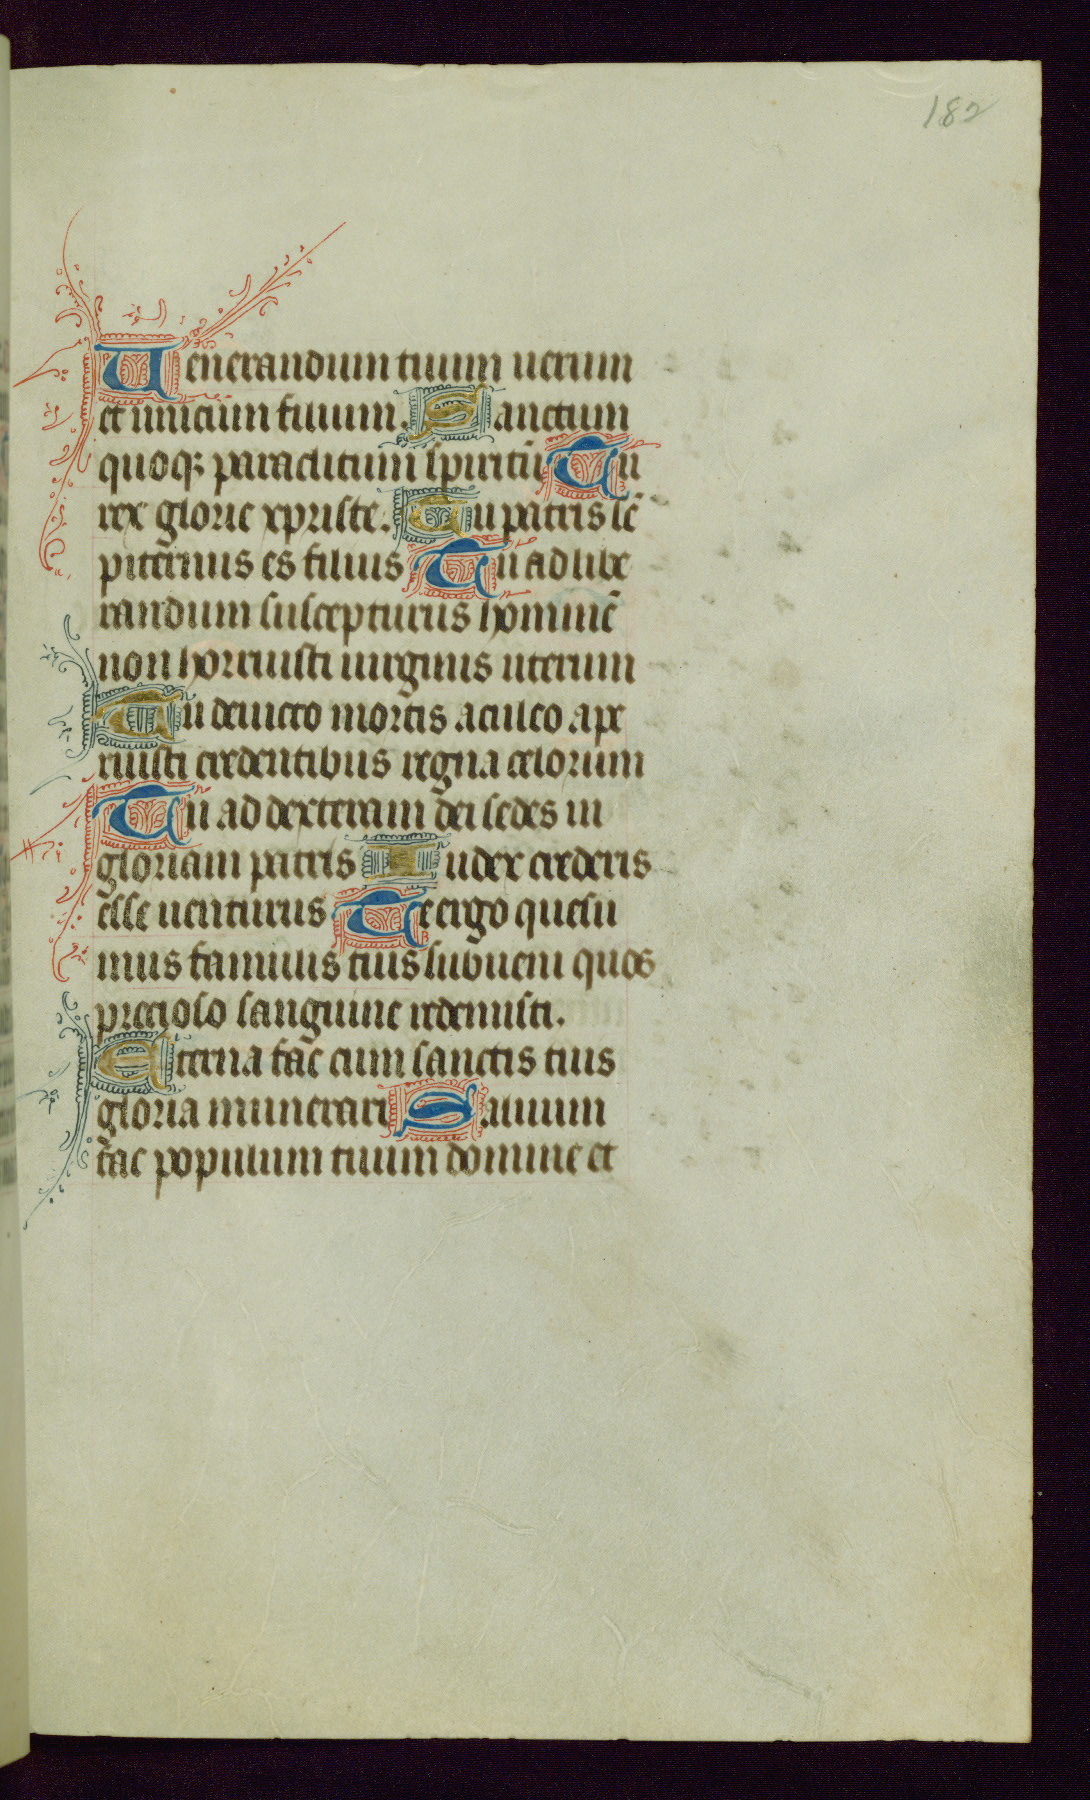 182
Uenerandum tuum uerum
et unicum filium. Sanctum
quoqꝫ paraclitum spiritū Tu
rex glorie xpriste. Tu patris sē
piternus es filius Tu ad libe
randum suscepturus hominē
non horruisti uirginis uterum
Tu deuicto mortis aculeo ape
ruisti credentibus regna celorum
Tu ad dexteram dei sedes in
gloriam patris Iudex crederis
esse uenturus Te ergo quesu
mus famulis tuis subueni quos
precioso sanguine redemisti.
Eterna fac cum sanctis tuis
gloria munerari Saluum
fac populum tuum domine et